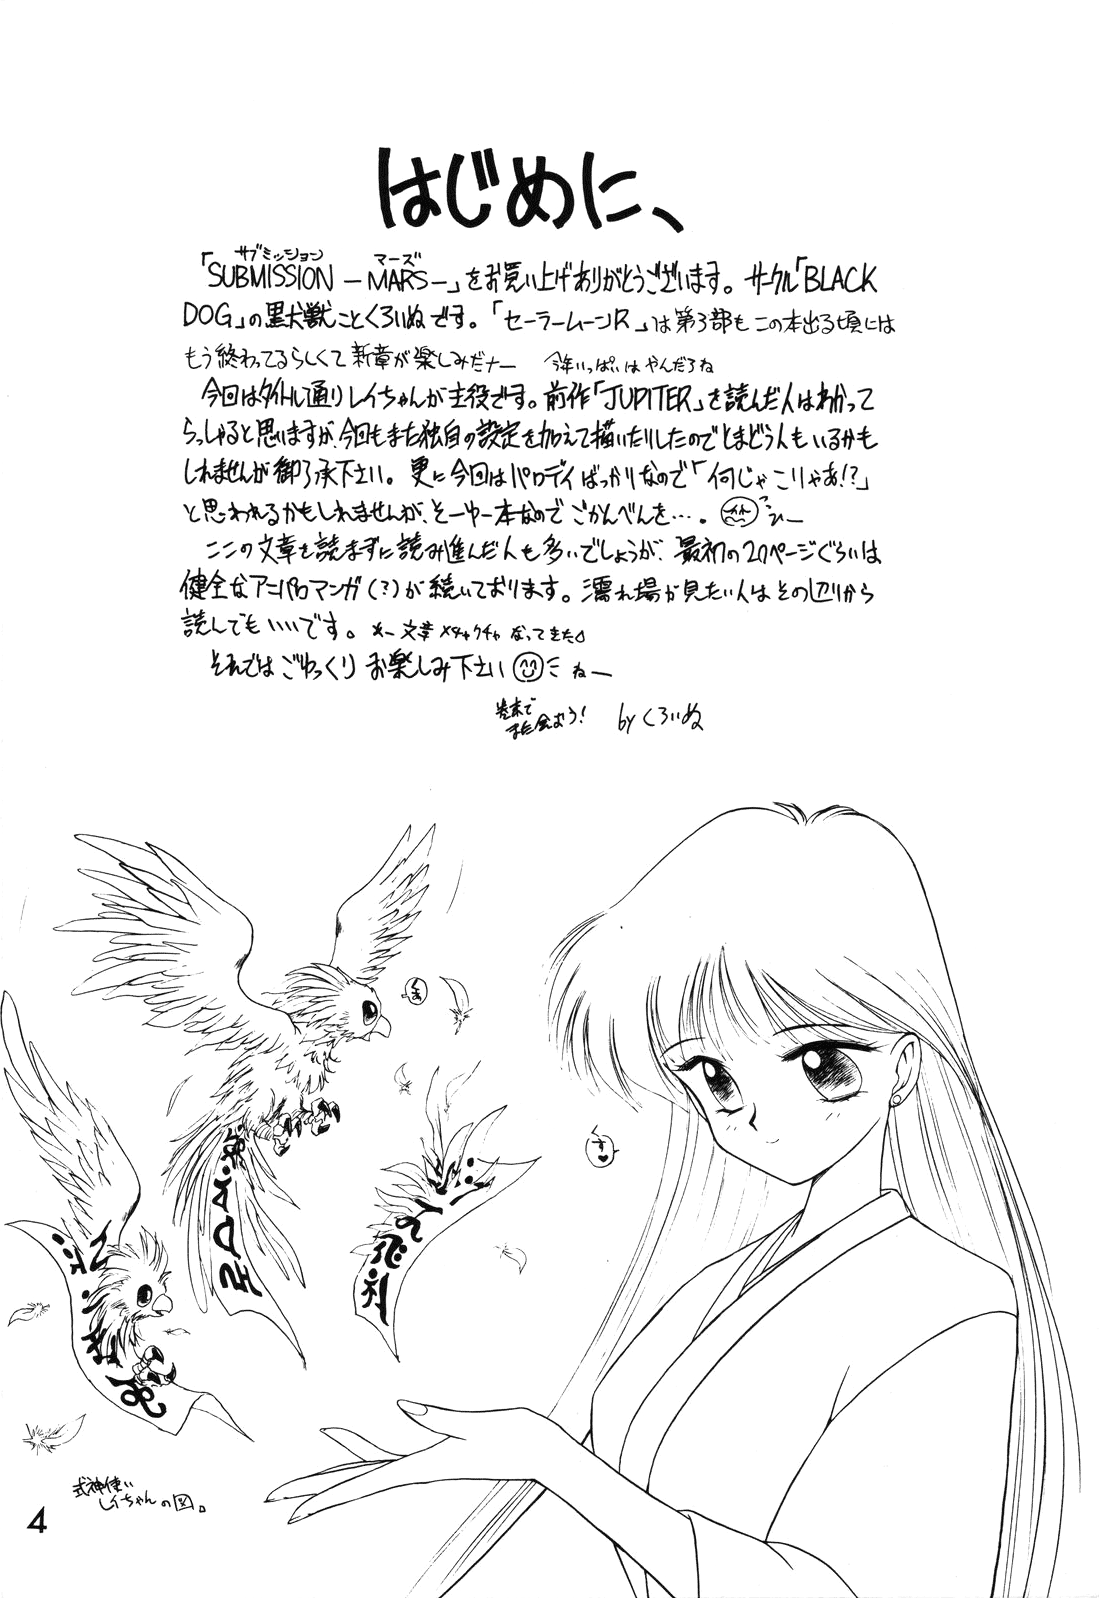 はじめに、
サブミッション マーズ
「SUBMISSION －MARS－」をお買い上げありがとうございます。サークル「BLACK
DOG」の黒犬獣ことくろいぬです。「セーラームーンR」は第3部もこの本出る頃には
もう終わってるらしくて新章が楽しみだナー 今年いっぱいはやんだろね
今回はタイトル通りレイちゃんが主役です。前作「JUPITER」を読んだ人はわかって
らっしゃると思いますが、今回もまた独自の設定を加えて描いたりしたのでとまどう人もいるかも
しれませんが御了承下さい。更に今回はパロディばっかりなので「何じゃこりゃあ!?」
と思われるかもしれませんが、そーゆー本なのでごかんべんを…。 ひー
ここの文章を読まずに読み進んだ人も多いでしょうが、最初の20ページぐらいは
健全なアニパロマンガ(?)が続いております。濡れ場が見たい人はその辺りから
読んでもいいです。 あー文章メチャクチャなってきた
それではごゆっくりお楽しみ下さい ねー
巻末で
また会おう!
by くろいぬ
くあ
す♥
式神使い
レイちゃんの図。
4